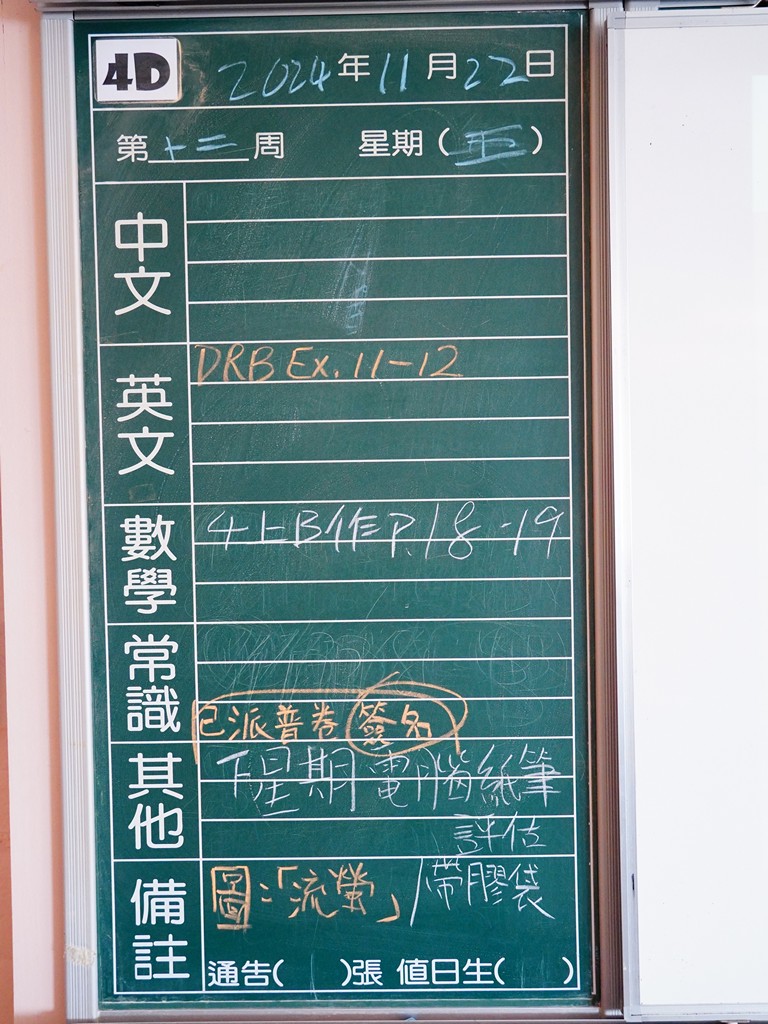 4D 2024年11月22日
第十二周 星期(五)
中文
英文 DRB Ex. 11-12
數學 4上B作P.18-19
常識
已派普卷 簽名
其他 下星期電腦紙筆
評估
備註 圖:「流螢」/帶膠袋
通告( )張 值日生( )